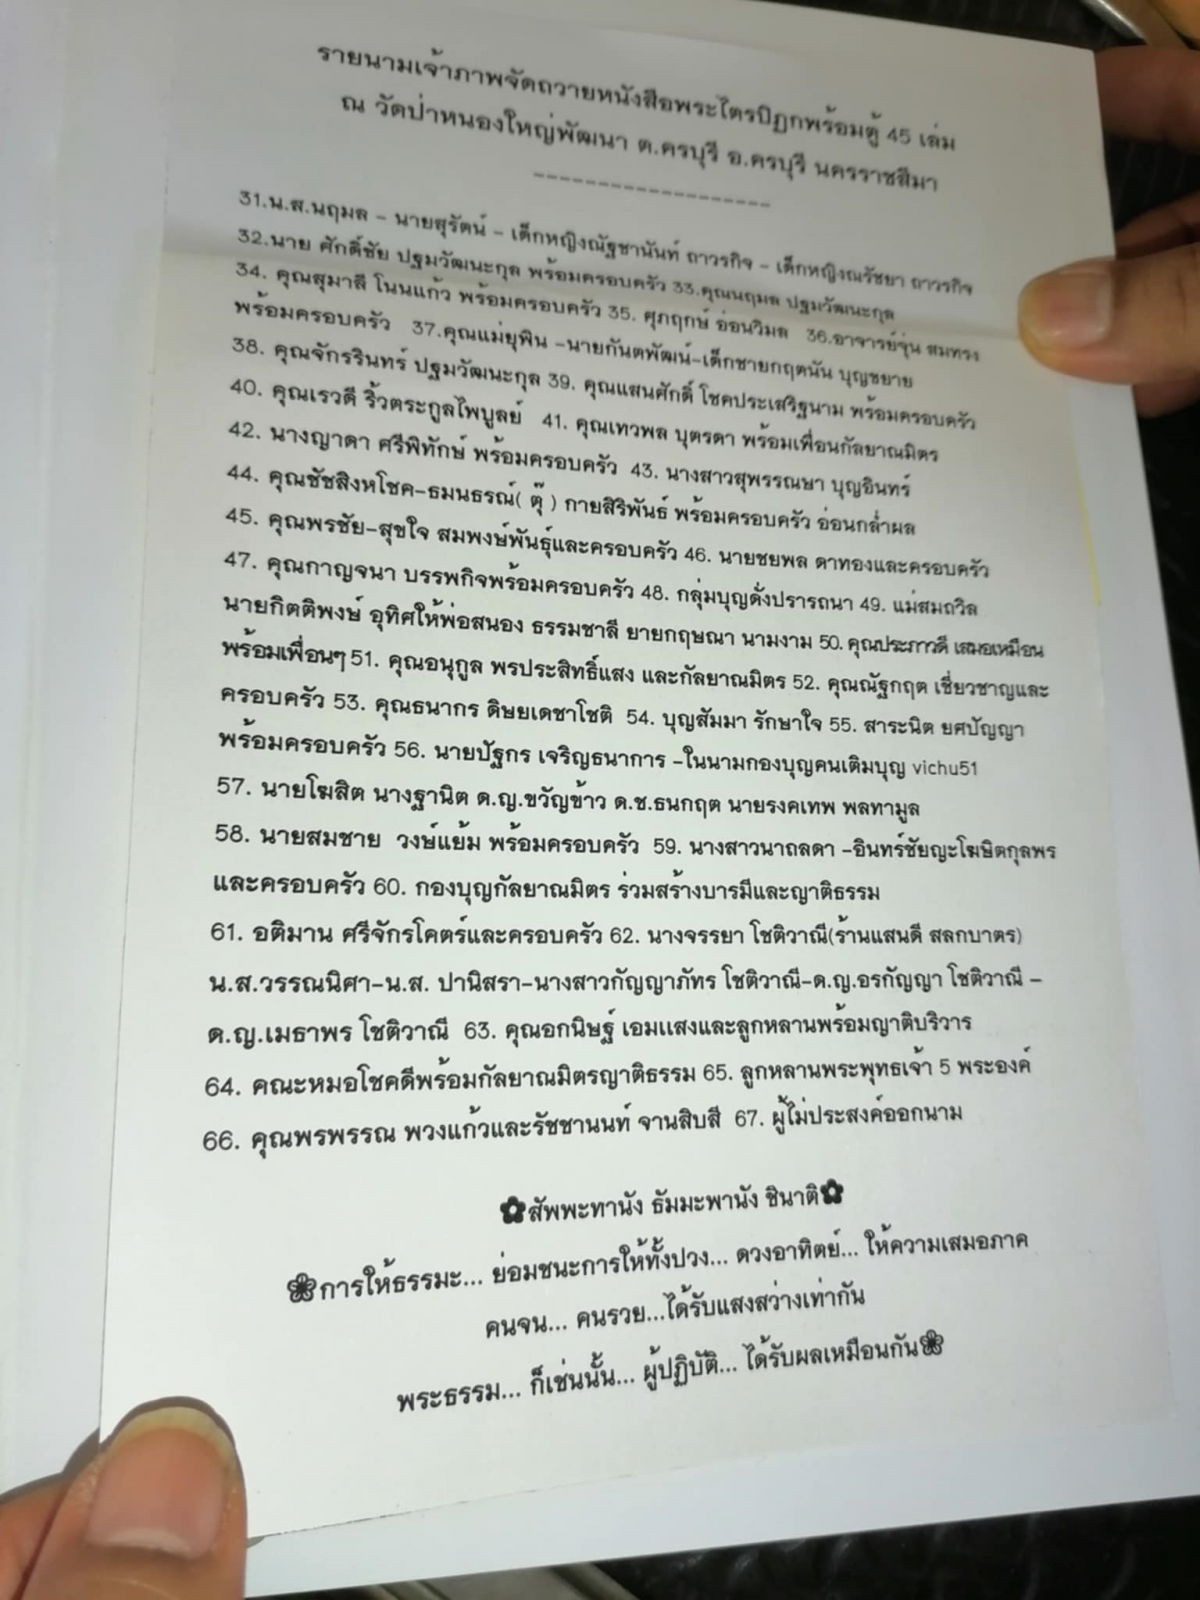 รายนามเจ้าภาพจัดถวายหนังสือพระไตรปิฎกพร้อมตู้ 45 เล่ม
ณ วัดป่าหนองใหญ่พัฒนา ต.ครบุรี อ.ครบุรี นครราชสีมา
-------------------
31.น.ส.นฤมล - นายสุรัตน์ - เด็กหญิงณัฐชานันท์ ถาวรกิจ - เด็กหญิงณรัชยา ถาวรกิจ
32.นาย ศักดิ์ชัย ปฐมวัฒนะกุล พร้อมครอบครัว 33.คุณนฤมล ปฐมวัฒนะกุล
34. คุณสุมาลี โนนแก้ว พร้อมครอบครัว 35. ศุภฤกษ์ อ่อนวิมล 36.อาจารย์จุ่น สมทรง
พร้อมครอบครัว 37.คุณแม่ยุพิน -นายกันตพัฒน์-เด็กชายกฤตนัน บุญขยาย
38. คุณจักรรินทร์ ปฐมวัฒนะกุล 39. คุณแสนศักดิ์ โชคประเสริฐนาม พร้อมครอบครัว
40. คุณเรวดี ริ้วตระกูลไพบูลย์ 41. คุณเทวพล บุตรดา พร้อมเพื่อนกัลยาณมิตร
42. นางญาดา ศรีพิทักษ์ พร้อมครอบครัว 43. นางสาวสุพรรณษา บุญอินทร์
44. คุณชัชสิงหโชค-ธมนธรณ์( ตุ๊ ) กายสิริพันธ์ พร้อมครอบครัว อ่อนกล่ำผล
45. คุณพรชัย-สุขใจ สมพงษ์พันธุ์และครอบครัว 46. นายชยพล ดาทองและครอบครัว
47. คุณกาญจนา บรรพกิจพร้อมครอบครัว 48. กลุ่มบุญดั่งปรารถนา 49. แม่สมถวิล
นายกิตติพงษ์ อุทิศให้พ่อสนอง ธรรมชาลี ยายกฤษณา นามงาม 50. คุณประภาวดี เสมอเหมือน
พร้อมเพื่อนๆ 51. คุณอนุกูล พรประสิทธิ์แสง และกัลยาณมิตร 52. คุณณัฐกฤต เชี่ยวชาญและ
ครอบครัว 53. คุณธนากร ดิษยเดชาโชติ 54. บุญสัมมา รักษาใจ 55. สาระนิต ยศปัญญา
พร้อมครอบครัว 56. นายปัฐกร เจริญธนาการ -ในนามกองบุญคนเติมบุญ vichu51
57. นายโฆสิต นางฐานิต ด.ญ.ขวัญข้าว ด.ช.ธนกฤต นายรงคเทพ พลทามูล
58. นายสมชาย วงษ์แย้ม พร้อมครอบครัว 59. นางสาวนาถลดา -อินทร์ชัยญะโฆษิตกุลพร
และครอบครัว 60. กองบุญกัลยาณมิตร ร่วมสร้างบารมีและญาติธรรม
61. อติมาน ศรีจักรโคตร์และครอบครัว 62. นางจรรยา โชติวาณี(ร้านแสนดี สลกบาตร)
น.ส.วรรณนิศา-น.ส. ปานิสรา-นางสาวกัญญาภัทร โชติวาณี-ด.ญ.อรกัญญา โชติวาณี -
ด.ญ.เมธาพร โชติวาณี 63. คุณอกนิษฐ์ เอมแสงและลูกหลานพร้อมญาติบริวาร
64. คณะหมอโชคดีพร้อมกัลยาณมิตรญาติธรรม 65. ลูกหลานพระพุทธเจ้า 5 พระองค์
66. คุณพรพรรณ พวงแก้วและรัชชานนท์ จานสิบสี 67. ผู้ไม่ประสงค์ออกนาม
✿สัพพะทานัง ธัมมะพานัง ชินาติ✿
❀การให้ธรรมะ... ย่อมชนะการให้ทั้งปวง... ดวงอาทิตย์... ให้ความเสมอภาค
คนจน... คนรวย...ได้รับแสงสว่างเท่ากัน
พระธรรม... ก็เช่นนั้น... ผู้ปฏิบัติ... ได้รับผลเหมือนกัน❀